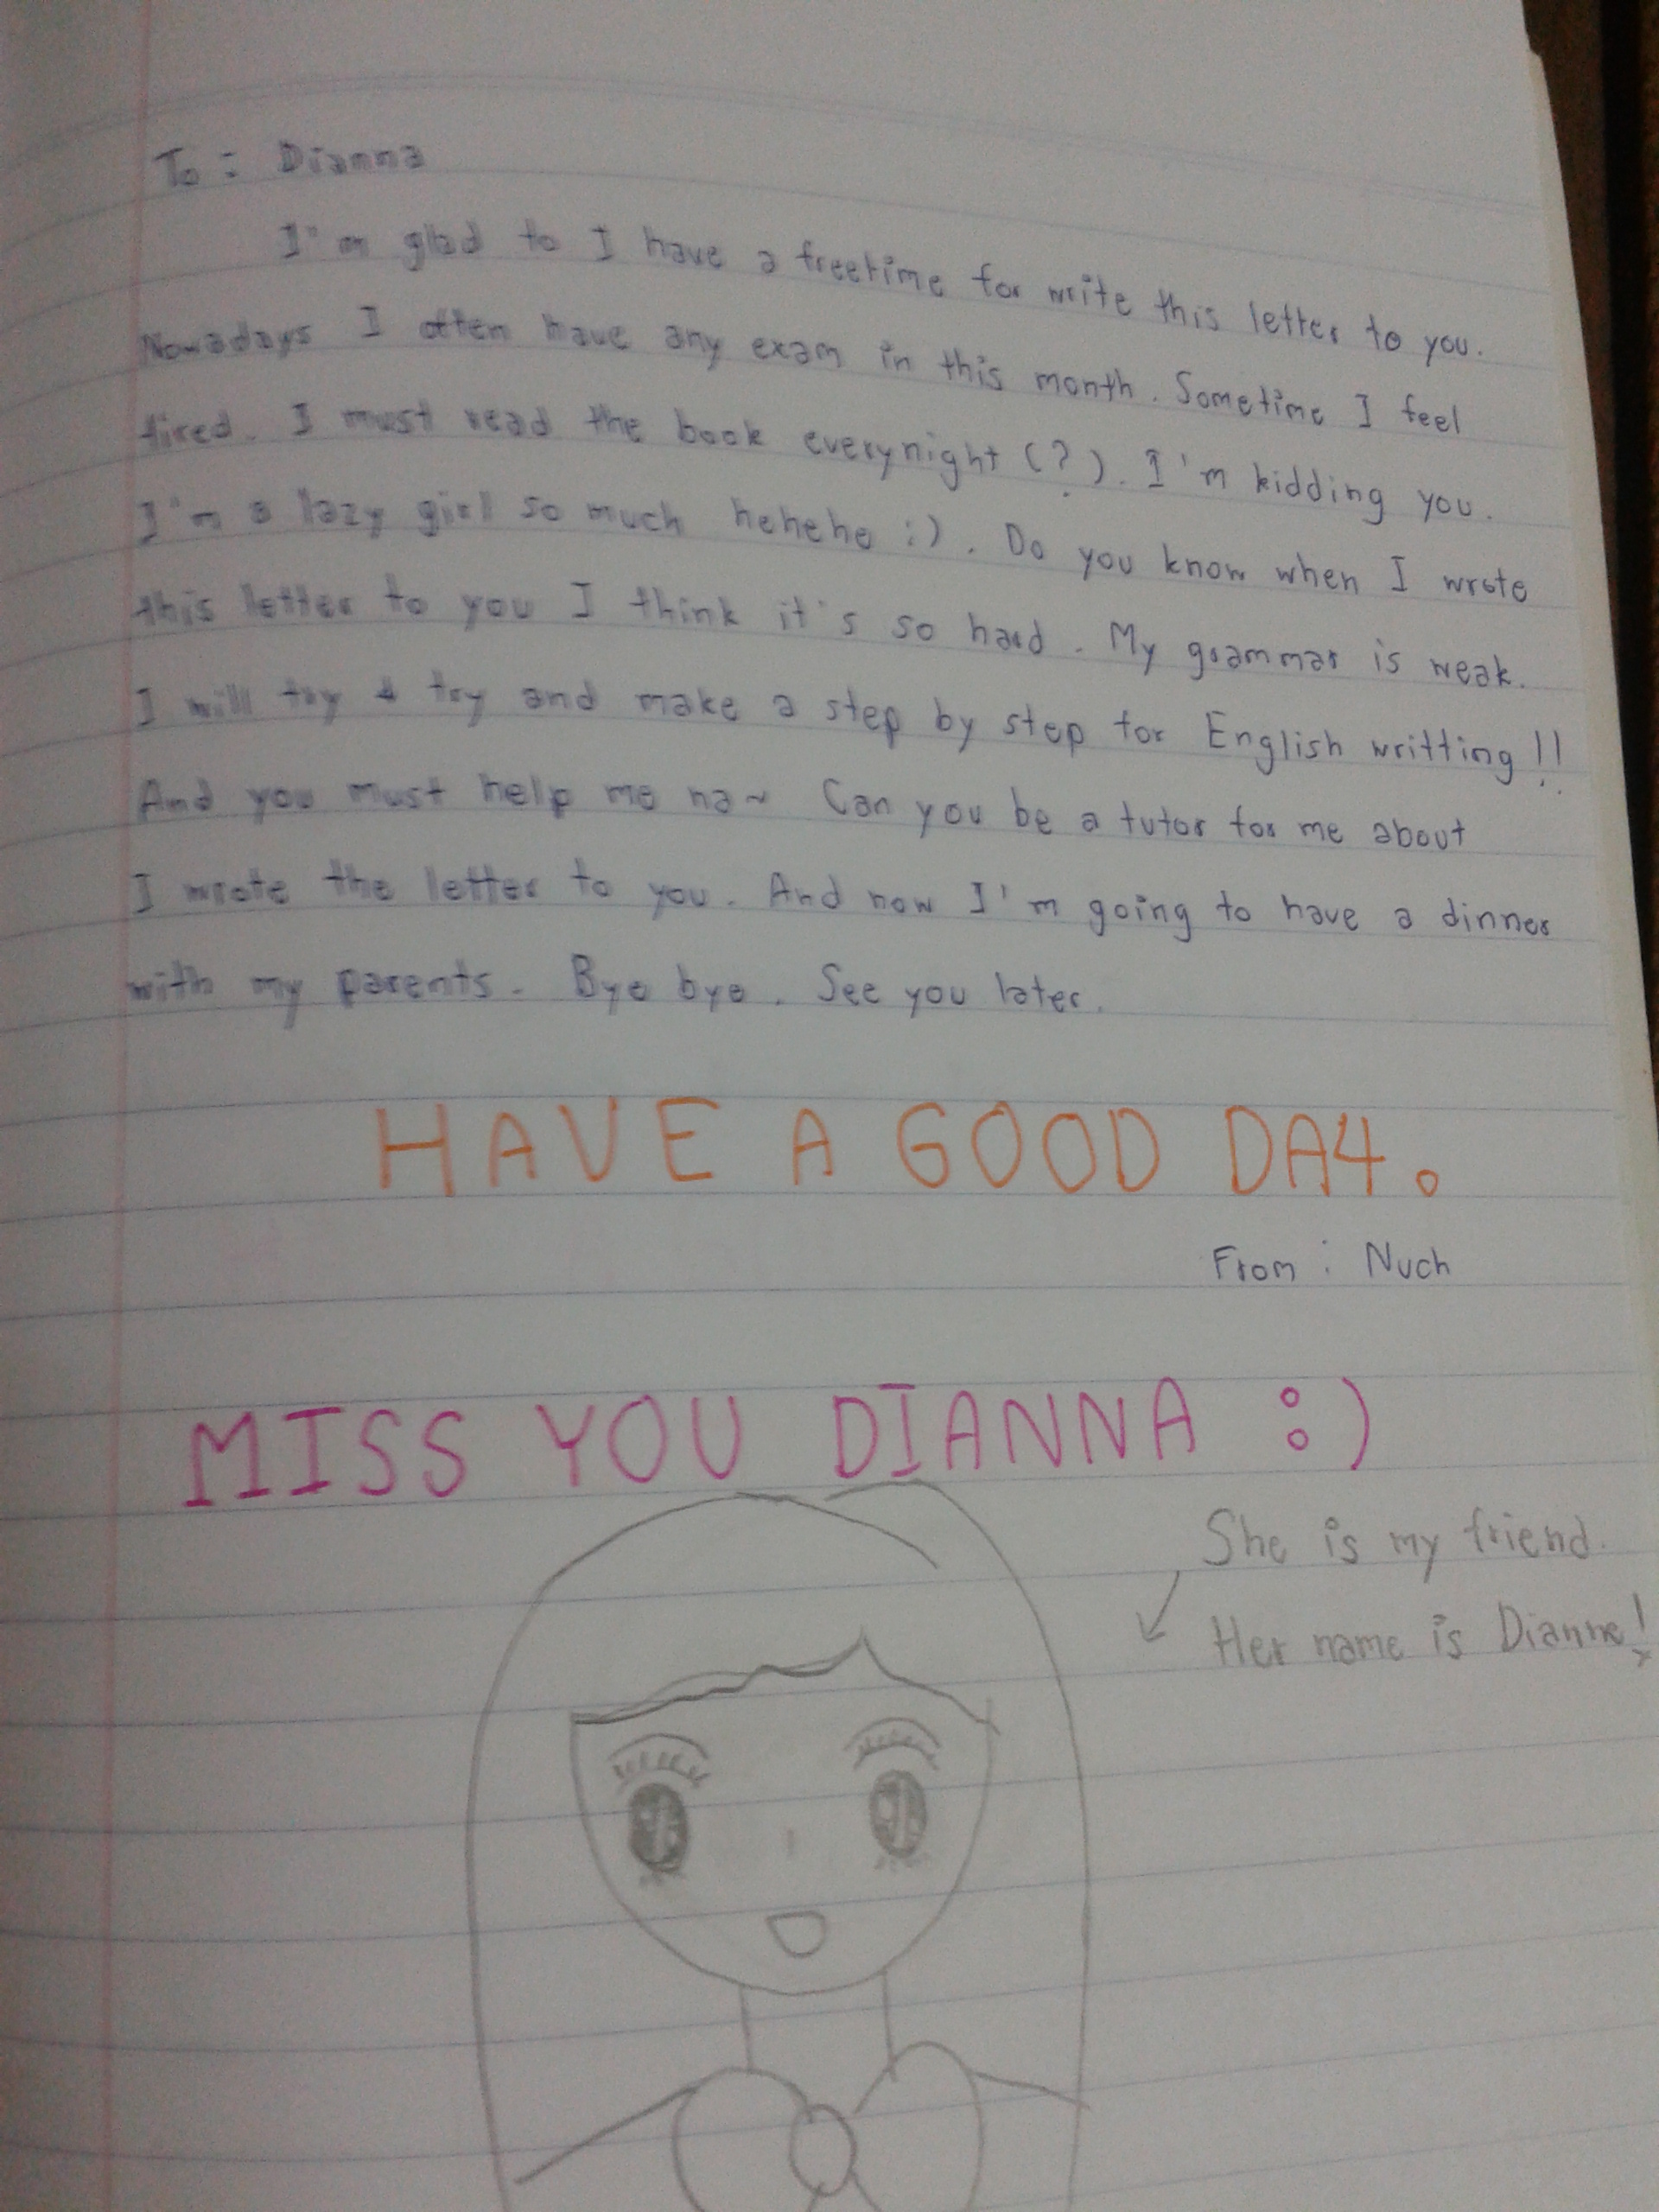 To : Dianna
I'm glad to I have a freetime for write this letter to you.
Nowadays I often have any exam in this month. Sometime I feel
tired. I must read the book everynight (?). I'm kidding you.
I'm a lazy girl so much hehehe :). Do you know when I wrote
this letter to you I think it's so hard. My grammar is weak.
I will try & try and make a step by step for English writting!!
And you must help me na~ Can you be a tutor for me about
I wrote the letter to you. And now I'm going to have a dinner
with my parents. Bye bye. See you later.
HAVE A GOOD DAY.
From : Nuch
MISS YOU DIANNA :)
She is my friend.
Her name is Dianna!